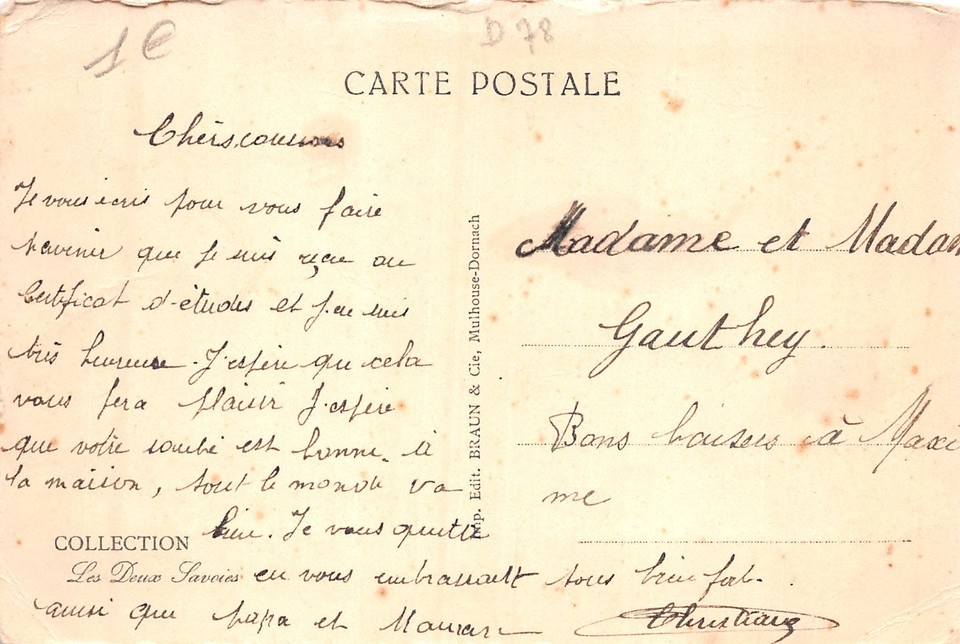 1 €
D 78
CARTE POSTALE
Chers cousins
Je vous écris pour vous faire
savoir que je suis reçue au
Certificat d'études et j'en suis
très heureuse. J'espère que cela
vous fera plaisir J'espère
que votre santé est bonne. à
la maison, tout le monde va
bien. Je vous quitte
en vous embrassant tous bien fort.
ainsi que papa et Maman
Christiane
COLLECTION
Les Deux Savoies
Imp. Edit. BRAUN & Cie, Mulhouse-Dornach
Madame et Madam
Gauthey.
Bons baisers à Maxi
me